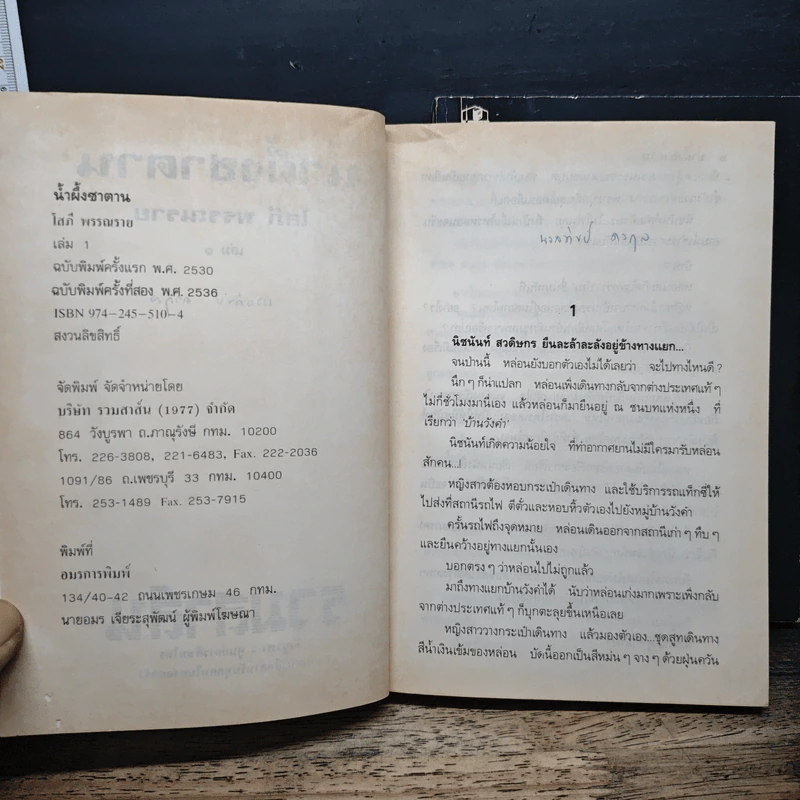 น้ำผึ้งซาตาน
โสภี พรรณราย
เล่ม 1
ฉบับพิมพ์ครั้งแรก พ.ศ. 2530
ฉบับพิมพ์ครั้งที่สอง พ.ศ. 2536
ISBN 974-245-510-4
สงวนลิขสิทธิ์
จัดพิมพ์ จัดจำหน่ายโดย
บริษัท รวมสาส์น (1977) จำกัด
864 วังบูรพา ถ.ภาณุรังษี กทม. 10200
โทร. 226-3808, 221-6483, Fax. 222-2036
1091/86 ถ.เพชรบุรี 33 กทม. 10400
โทร. 253-1489 Fax. 253-7915
พิมพ์ที่
อมรการพิมพ์
134/40-42 ถนนเพชรเกษม 46 กทม.
นายอมร เจียระสุพัฒน์ ผู้พิมพ์โฆษณา
1
นิชนันท์ สวดิษกร ยืนละล้าละลังอยู่ข้างทางแยก...
จนป่านนี้ หล่อนยังบอกตัวเองไม่ได้เลยว่า จะไปทางไหนดี ?
นึก ๆ ก็น่าแปลก หล่อนเพิ่งเดินทางกลับจากต่างประเทศแท้ ๆ
ไม่กี่ชั่วโมงมานี่เอง แล้วหล่อนก็มายืนอยู่ ณ ชนบทแห่งหนึ่ง ที่
เรียกว่า 'บ้านวังคำ'
นิชนันท์เกิดความน้อยใจ ที่ท่าอากาศยานไม่มีใครมารับหล่อน
สักคน...!
หญิงสาวต้องหอบกระเป๋าเดินทาง และใช้บริการรถแท็กซี่ให้
ไปส่งที่สถานีรถไฟ ตีตั๋วและหอบหิ้วตัวเองไปยังหมู่บ้านวังคำ
ครั้นรถไฟถึงจุดหมาย หล่อนเดินออกจากสถานีเก่า ๆ ทึบ ๆ
และยืนคว้างอยู่ทางแยกนั้นเอง
บอกตรง ๆ ว่าหล่อนไปไม่ถูกแล้ว
มาถึงทางแยกบ้านวังคำได้ นับว่าหล่อนเก่งมากเพราะเพิ่งกลับ
จากต่างประเทศแท้ ๆ ก็บุกตะลุยขึ้นเหนือเลย
หญิงสาววางกระเป๋าเดินทาง แล้วมองตัวเอง...ชุดสูทเดินทาง
สีน้ำเงินเข้มของหล่อน บัดนี้ออกเป็นสีหม่น ๆ จาง ๆ ด้วยฝุ่นควัน